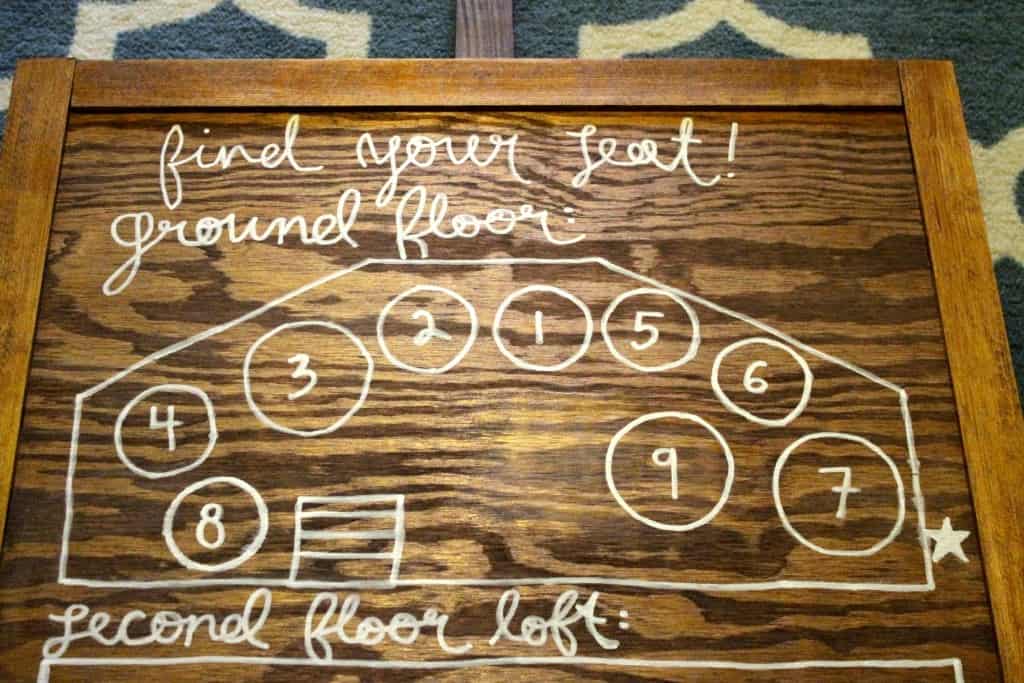 find your seat!
ground floor:
2 1 5
3 6
4 9 7
8
second floor loft: